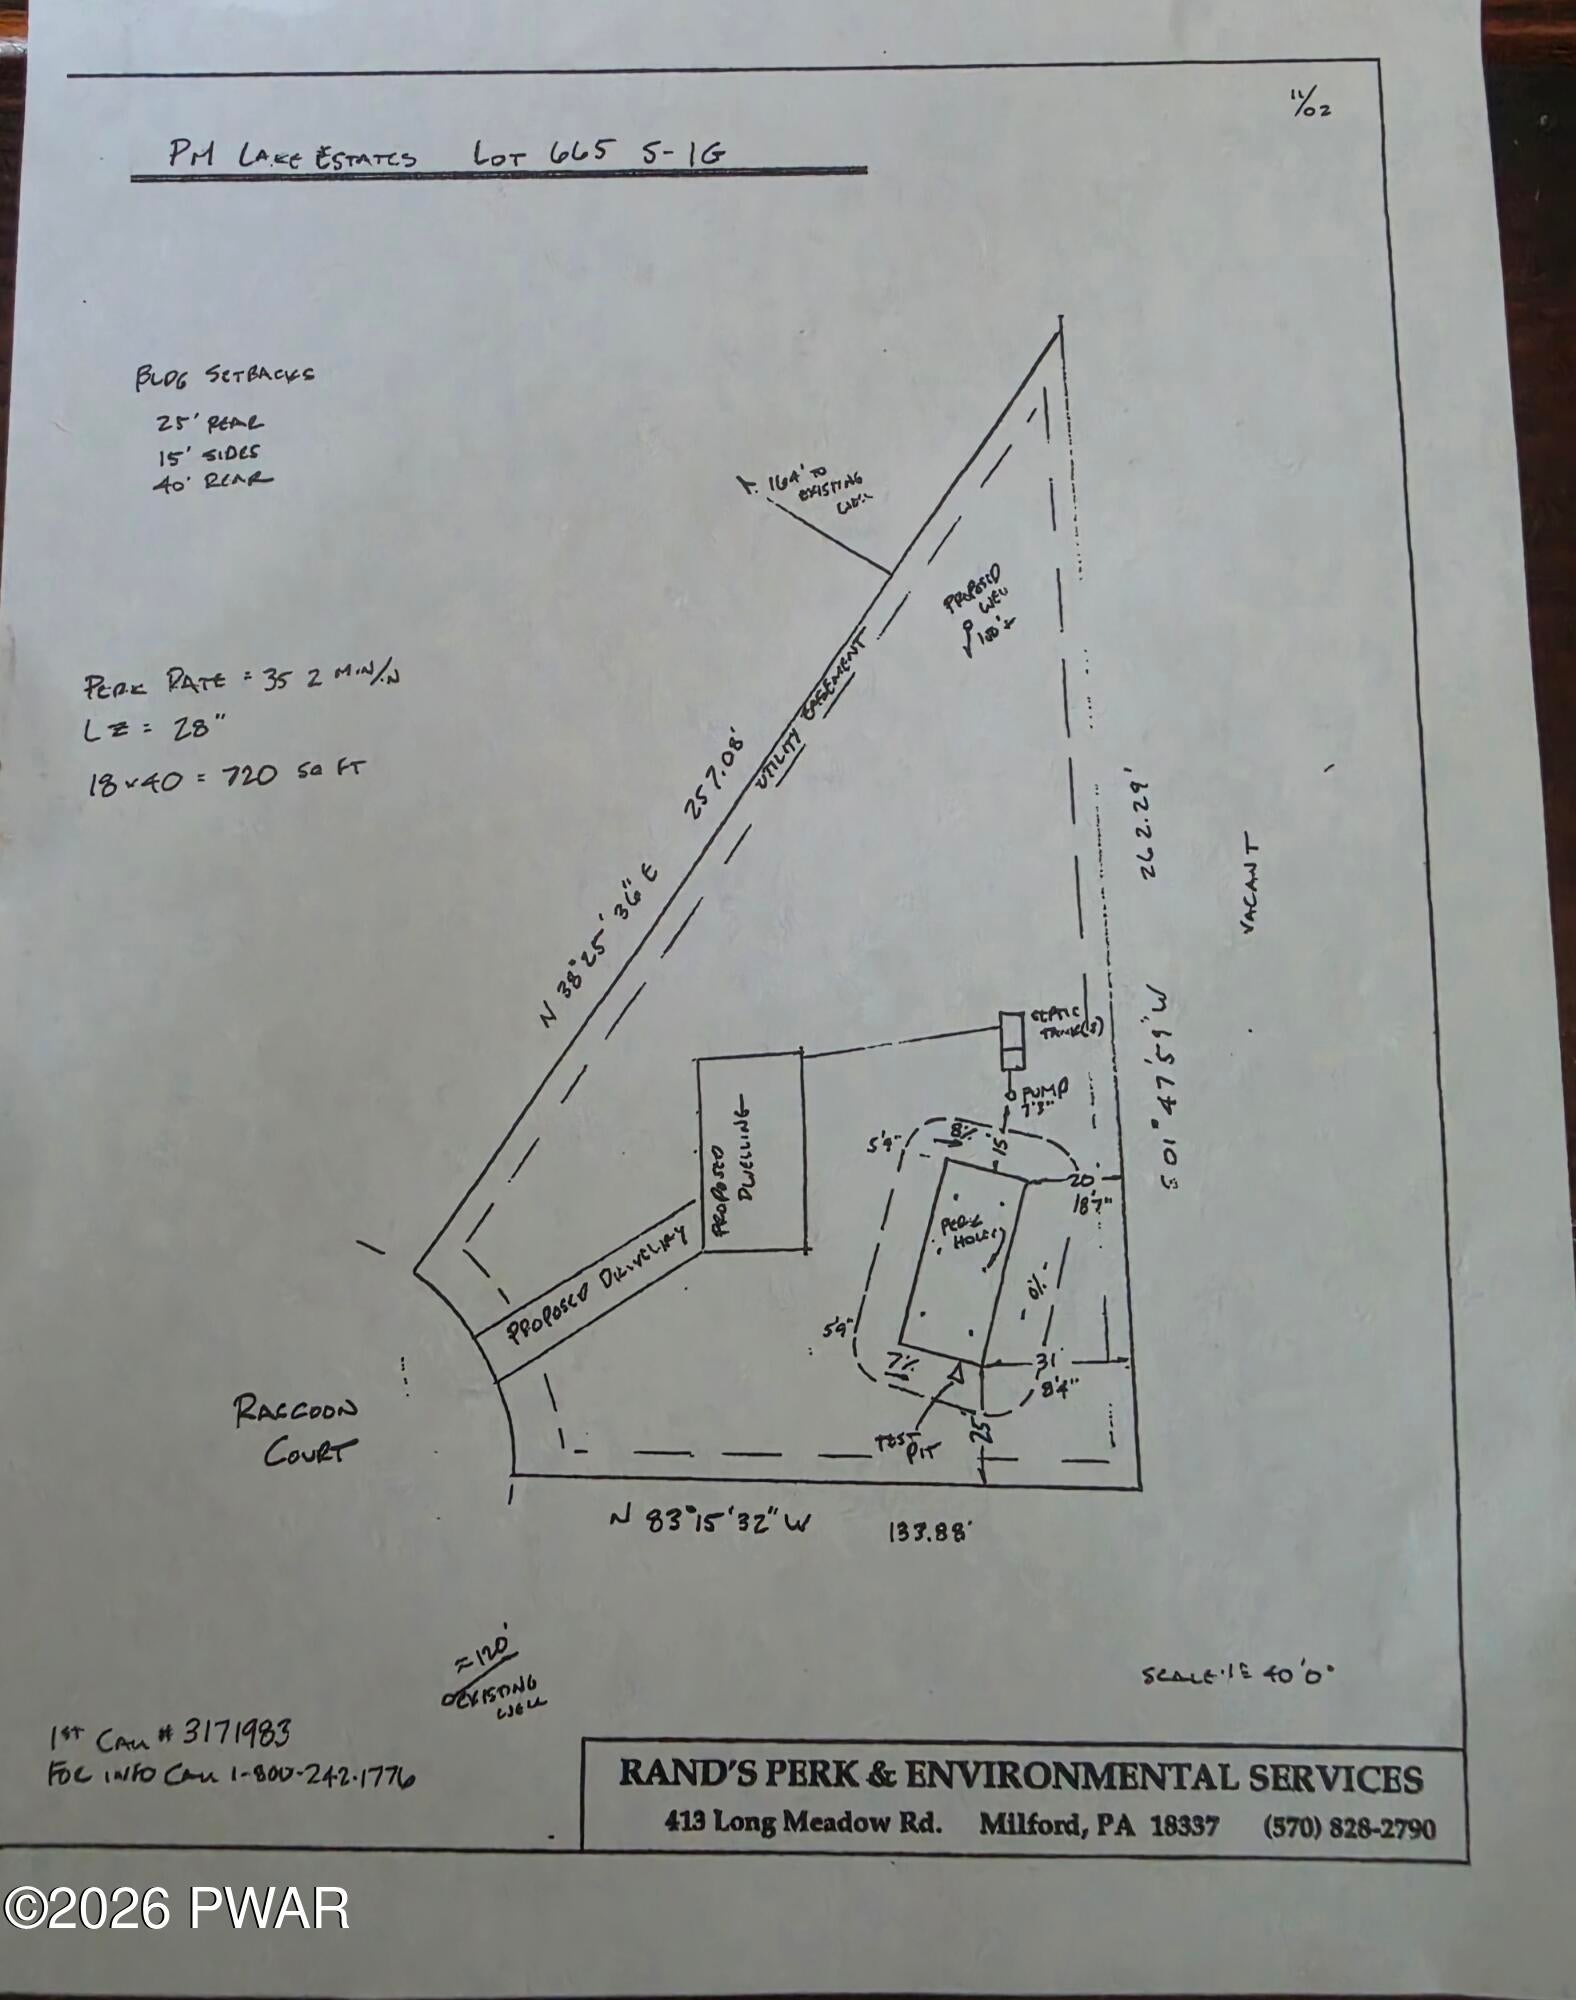 11/02
PM LAKE ESTATES LOT 665 S-1G
BLDG SETBACKS
25' REAR
15' SIDES
40' REAR
164' TO
EXISTING
WELL
PROPOSED
WELL
100'±
PERK RATE = 35 2 MIN/IN
LZ = 28"
18 x 40 = 720 SQ FT
257.08'
UTILITY EASEMENT
N 38°25'36" E
262.29'
VACANT
S 01°47'59" W
SEPTIC
TANK(S)
PUMP
7'3"
5'9"
8%
15'
20'
18'7"
PERK
HOLES
PROPOSED
DWELLING
PROPOSED DRIVEWAY
0%
5'9"
7%
31'
8'4"
TEST
PIT
25'
RACCOON
COURT
N 83°15'32" W 133.88'
≈120'
EXISTING
WELL
SCALE: 1"= 40'0"
1ST CALL # 3171983
FOR INFO CALL 1-800-242-1776
RAND'S PERK & ENVIRONMENTAL SERVICES
413 Long Meadow Rd. Milford, PA 18337 (570) 828-2790
©2026 PWAR